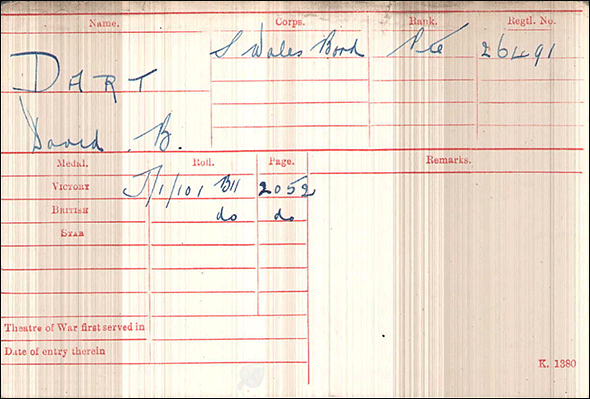 Name. Corps. Rank. Regtl. No.
DART S Wales Bord Pte 26491
David B.
Medal. Roll. Page. Remarks.
VICTORY J/1/101 B11 2052
BRITISH do do
STAR
Theatre of War first served in
Date of entry therein
K. 1380